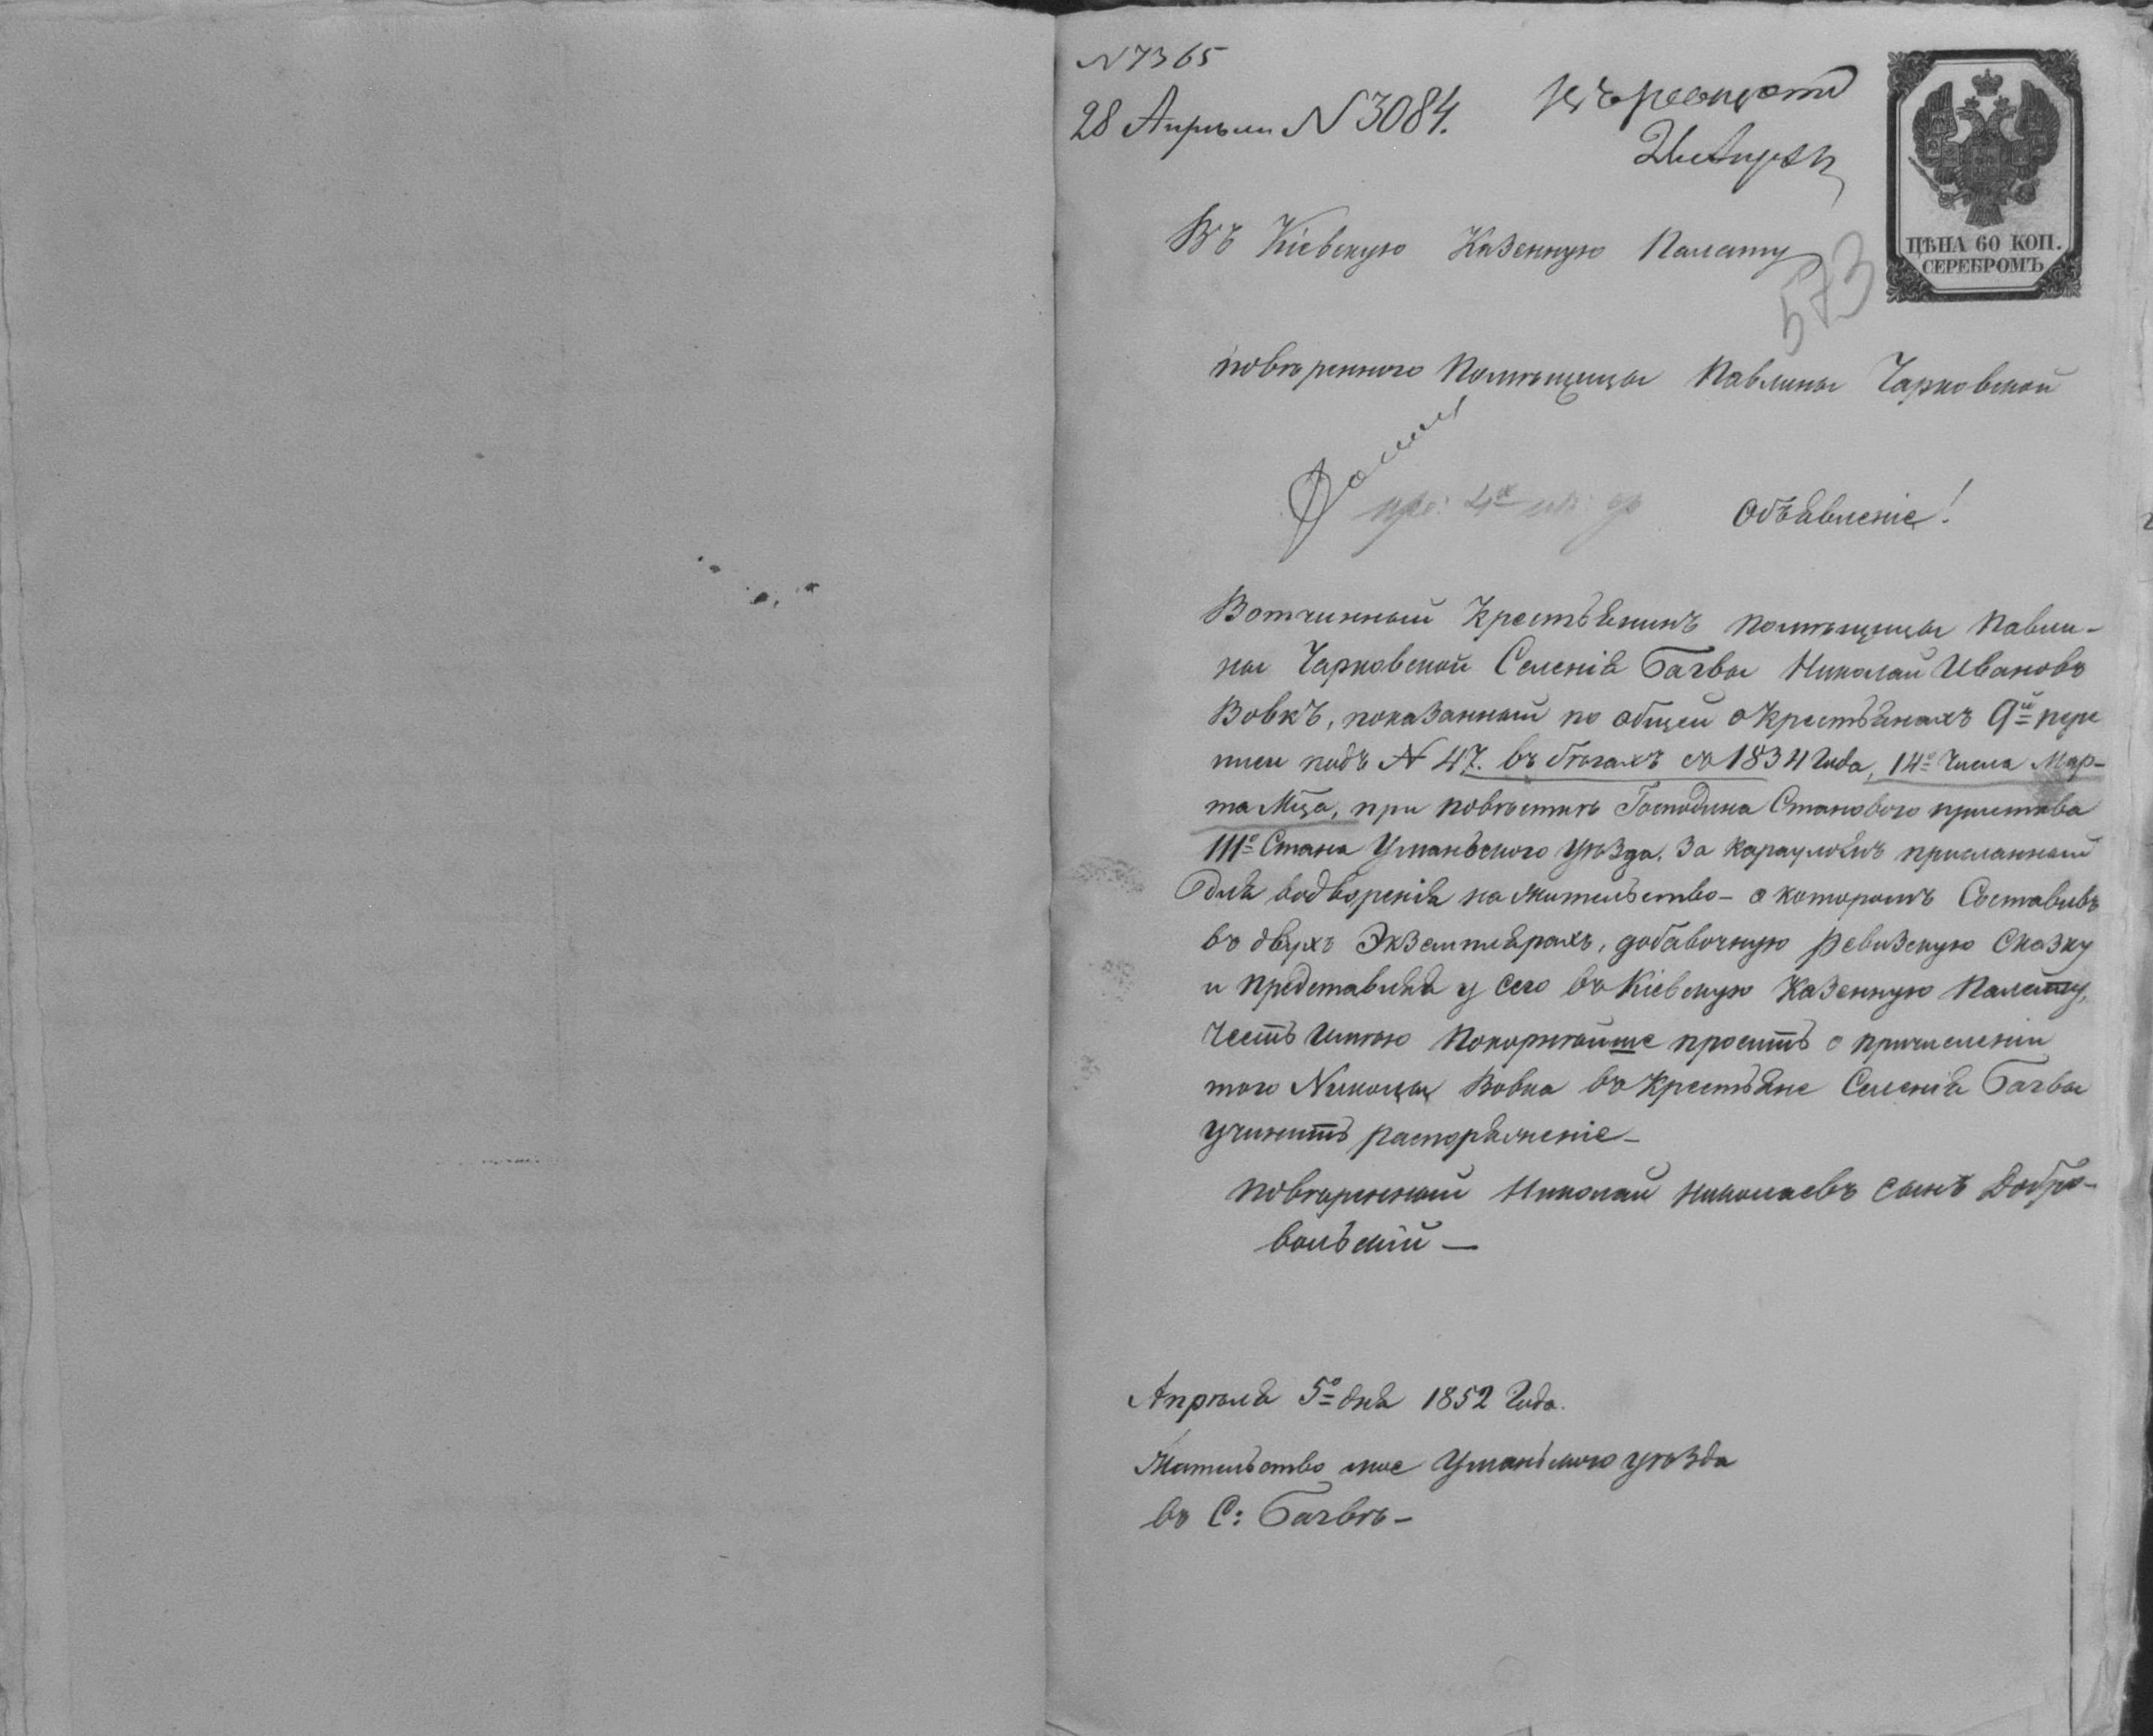 N 7365
28 Апрѣля N 3084.
ЦѢНА 60 КОП.
СЕРЕБРОМЪ
573
Въ Кіевскую Казенную Палату
повѣренного Помѣщицы Павлины Чарковской
Объявленіе!
Вотчинный Крестьянинъ помѣщицы Павли-
ны Чарковской Селенія Багвы Николай Ивановъ
Вовкъ, показанный по общей о крестьянахъ 9й пере
писи подъ N 47. въ бѣгахъ съ 1834 Года, 14о Числа Мар-
та Мца, при повѣсткѣ Господина Станового пристава
111о Стана Уманьского уѣзда, за карауломъ присланный
для водворенія на жительство - о которомъ Составивъ
въ двухъ Экземплярахъ, добавочную Ревизскую Сказку
и представляя у сего въ Кіевскую Казенную Палату,
Честь Имѣю Покорнѣйше просить о причисленіи
того Николая Вовка въ Крестьяне Селенія Багвы
учинить распоряженіе -
повѣренный Николай Николаевъ сынъ Добро-
вольскій -
Апрѣля 5о дня 1852 Года.
Жительство мое Уманьского уѣзда
въ С: Багвѣ -